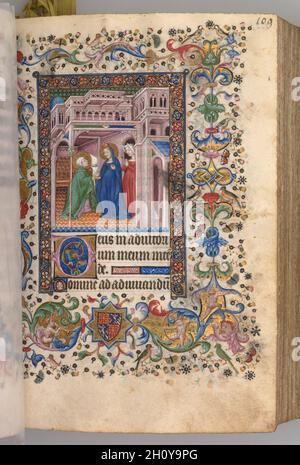 109
Deus in adiutori
um meum inten
de.
Domine ad adiuvandu